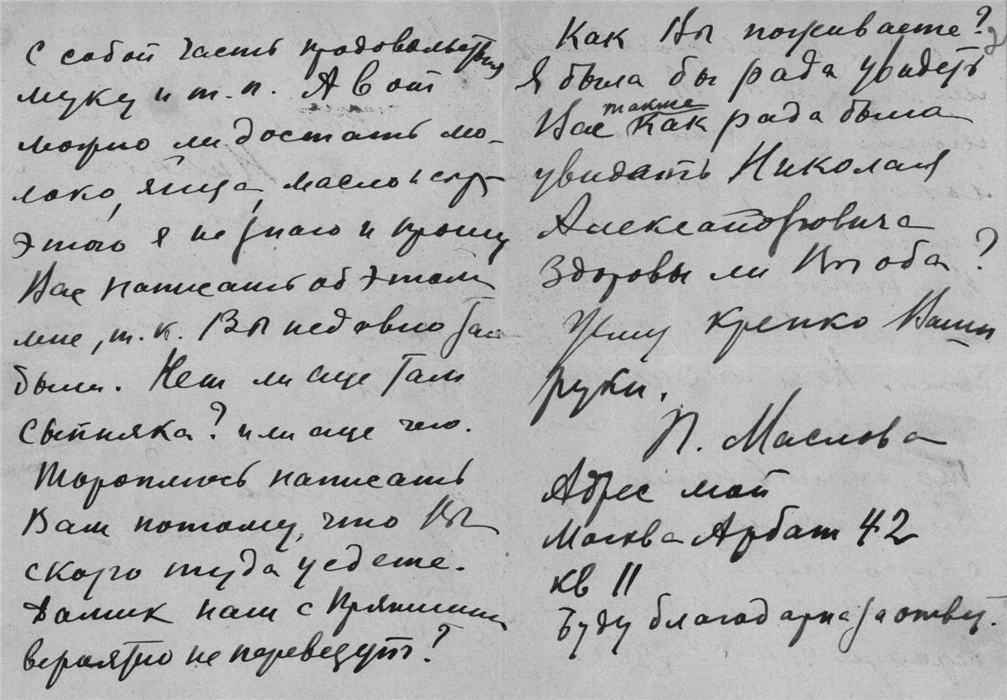 с собой часть продовольствия
муку и т.п. А вот
можно ли достать мо-
локо, яйца, масло и сыр
этого я не знаю и прошу
Вас написать об этом
мне, т.к. Вы недавно там
были. Нет ли еще там
сыпняка? или еще чего.
Тороплюсь написать
Вам потому, что Вы
скоро туда уедете.
Домик наш с
вероятно не перевезут?
Как Вы поживаете?
Я была бы рада увидеть
Вас также как рада была
увидать Николая
Александровича
Здоровы ли Вы оба?
Жму крепко Ваши
руки.
П. Маслова
Адрес мой
Москва Арбат 42
кв 11
Буду благодарна за ответ.